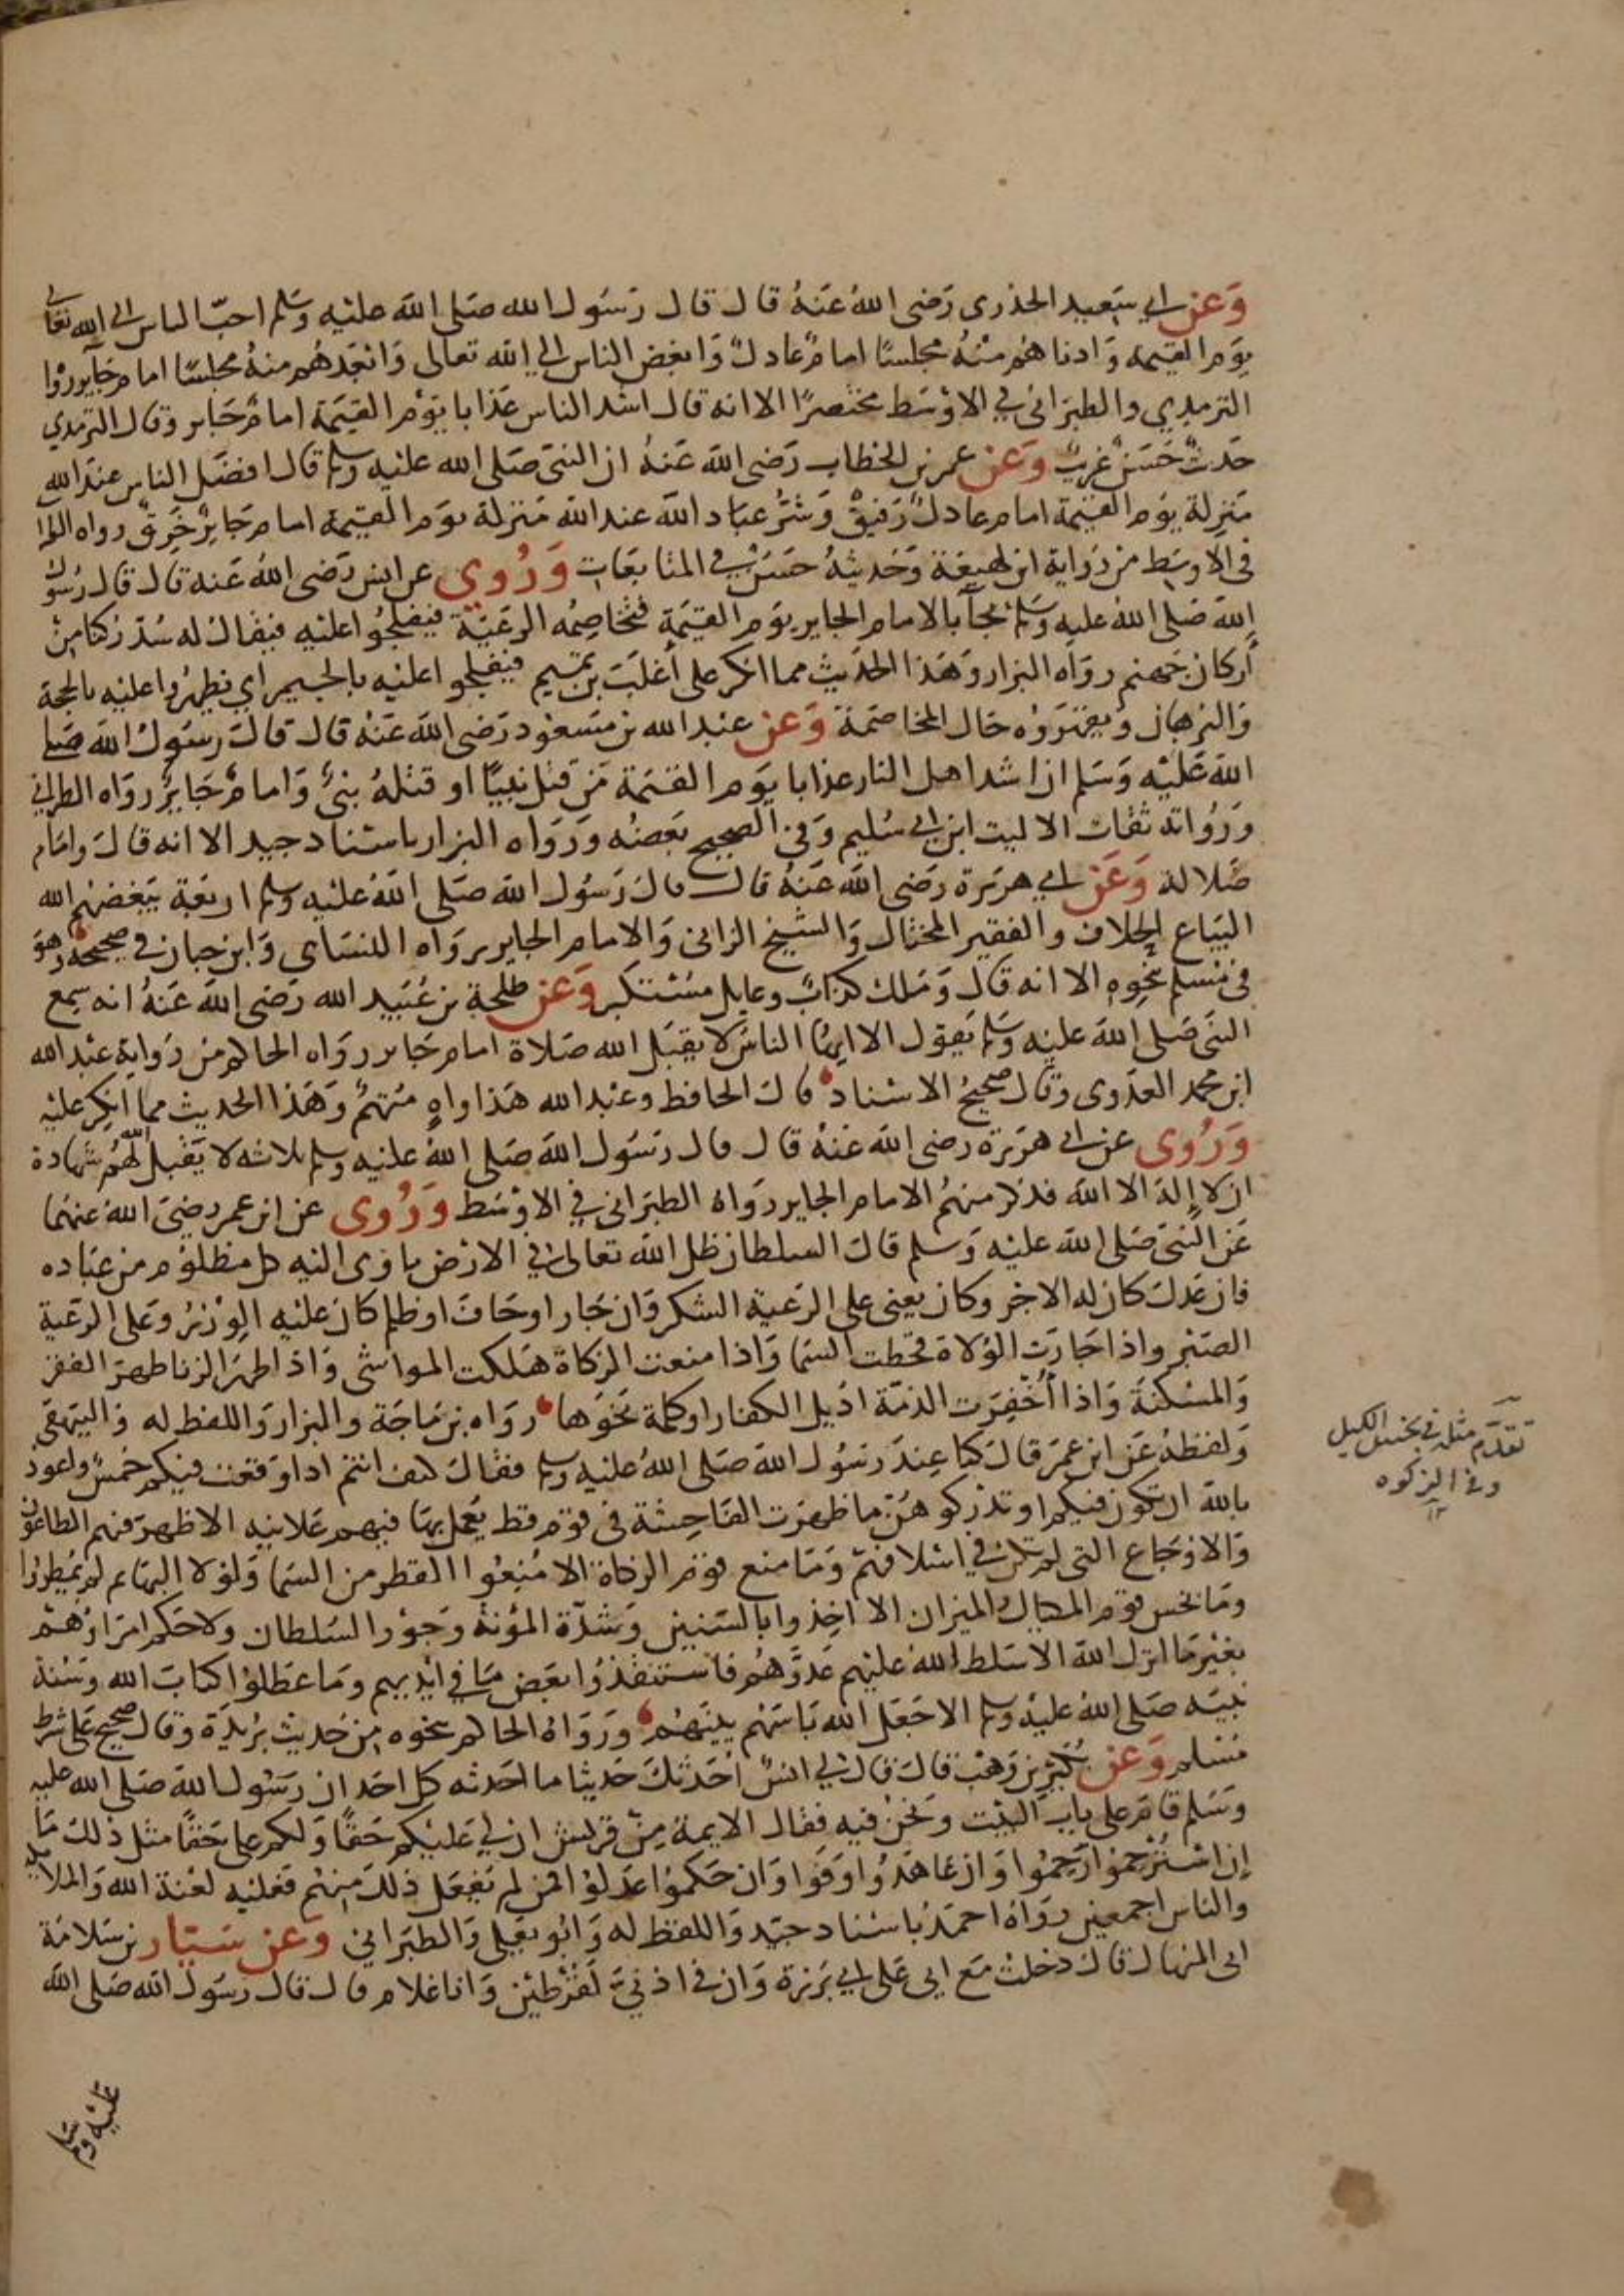 وَعَن ابي سَعيد الخذرى رَضى اللهُ عَنهُ قال قال رَسُول الله صَلى اللهَ عليه وسَلم احبّ الناس الى الله تعالى
يوَم القيمة وَادناهُم منهُ مجلسًا امامٌ عادلٌ وَابغض الناس الى الله تعالى وَابعَدهُم منهُ مجلسًا امام جَاير رَوا
الترمدي والطبرَاني في الاوسَط مختصرًا الا انه قال اشد الناس عَذابا يوَم القيَمة امامٌ جَاير وقال الترمدي
حَديث حَسَن غريبٌ وَعَن عمر بن الخطاب رَضى الله عَنهُ ان النبى صَلى الله عليه وسلم قال افضَل الناس عندَ الله
مَنزلة يوَم القيمة امام عادلٌ رَفيقٌ وَشرُّ عبَاد الله عند الله مَنزلة يوَم القيمة امام جَايرٌ خَرِقٌ رواه الطبرا
في الاوسَط من رَواية ابن لهيعَة وَحَديثهُ حسَنٌ في المتابعَات وَرُوي عن انس رَضى اللهُ عَنه قال قال رَسُول
اللهَ صَلى اللهُ عليه وسَلم يجآ بالامام الجاير يوَم القيَمة فتخاصِمُه الرعَيّة فيفلجُوا عليه فيقال له سُدّ ركنا مِنْ
أركان جَهنم رواه البزار وَهَذا الحدَيث مما انكر على أغلَبَ بن تميم فيفلجو اعليه بالجيم اي يظهرُوا عليه بالحجة
وَالبرهان وَيقهَروه حَال المخاصمَة وَعَن عَبد الله بن مَسعُود رَضى اللهَ عَنهُ قال قال رسَول اللهَ صَلى
اللهَ عَليْه وَسَلم ان اشد اهل النار عذابا يوَم القيمَة مَن قتل نبيًا او قتلهُ نبىٌ وَامامٌ جَايرٌ رواه الطبراني
ورُواته ثقات الا ليث ابن ابي سُليم وَفي الصحيح بَعضُه وَرَواه البزار باسناد جيد الا انه قال وامَام
ضَلالة وَعَن ابي هريَرة رضَى الله عَنهُ قال قال رَسُول الله صَلى اللهُ عليه وسلم اربعَة يَبغضهُم الله
البَياع الحلاف والفقير المختال وَالشيخ الزانى وَالامام الجاير رواه النسَاى وَابن حبان في صَحيحه وَهوَ
فى مُسلم بنحوه الا انه قال وَمَلك كذابٌ وعايل مسُتكبر وَعَن طلحة بن عُبَيد الله رَضى اللهَ عَنهُ انه سمع
النبىَ صَلى اللهَ عليه وسَلم يَقول الا ايهُا الناسَ لا يقبَل الله صَلاة امام جَاير رواه الحاكم من رَواية عَبد الله
ابن محمد العدَوى وقال صحيحُ الاسناد قال الحافظ وعَبد الله هَذا واهٍ مُتهمٌ وَهَذا الحديث مما انكِر عليْه
وَرُوى عن ابي هرَيرة رضى اللهَ عَنهُ قال قال رسَول الله صَلى اللهُ عليه وسلم ثلاثه لا يَقبل الله لهُم شهادة
ان لا إله الا الله فذكر منهمُ الامام الجاير رَواهُ الطبَراني في الاوسَط وَرُوى عن ابن عمر رضىَ اللهُ عنهُما
عَن النبىَ صَلى الله عليه وَسلم قال السلطان ظل الله تعالى في الارَض ياوى اليه كل مظلوُم من عبَاده
فان عَدل كان له الاجر وكان يعنى على الرَعيةِ الشكر وَان جَار اوحَاف او ظلم كان عليه الوِزرُ وعَلى الرعَية
الصَبر واذا جَارت الوُلاة قحَطت السَما وَاذا منعت الزكاة هَلكت المواشى وَاذا ظهرَ الزنا ظهرَ الفقر
وَالمسْكنةَ وَاذا أخْفِرَت الذمّة اديل الكفار او كلمة نحَوها رواه بن مَاجَة والبزار وَاللفظ له وَالبيهقى
وَلفظهُ عَن ابن عمَر قال كنا عِندَ رسُول الله صَلى اللهُ عليه وسلم فقال كيف انتم اذا وقعَت فيكم خمسٌ واعُوذ
بالله ان تكون فيكم او تدركوهُنّ ما ظهرَت الفَاحِشة في قوم قط يُعمل بهَا فيهم عَلانيه الا ظهرَ فيهم الطاعون
وَالاوجَاع التى لم تكن في اسلافهمْ وَمَا منع قوَم الزكاة الا مُنِعُوا القطر من السَما وَلوْلا البهَايم لم يمُطرَوا
وَمَا بخس قوم المكيال والميزان الا اُخِذوا بالسَنين وَشدّة المؤنة وَجَوْر السَلطان ولا حَكم امرَاؤهُم
بغَير مَا انزل الله الا سَلط الله عليْهم عَدوَّهُم فاستنقذُوا بعَض مَا في ايْديهم ومَا عَطلوْا كتابَ الله وَسُنة
نبيَه صَلى اللهُ عليهْ وسلم الا جَعَل الله بَاسَهُم بينَهُم وَرَواهُ الحاكم بنحوه مِن حَديث بُريَدة وقال صحيح عَلى شرط
مُسْلم وَعَن بُكيْر بن وَهْب قال قال لي انسٌ اُحَدثكَ حَديثا ما احَدثه كل احَد ان رسَول الله صَلى الله عليه
وسَلم قام على باب البَيت وَنحَن فيه فقال الايمة مِن قريش ان لي عَليكم حَقًا وَلكم على حَقًا مثل ذلك مَا
إن استُرْحِمُوا رَحِمُوا وَان عَاهَدُوا وَفَوا وَان حَكمُوا عَدلوْا فمَن لم يَفعَل ذلك مِنهُم فعَليْه لعْنة الله وَالملايكه
والناس اجمعين رواهُ احمَد باسْناد جيّد وَاللفظ له وَابُو يعَلى وَالطبَراني وَعَن سَيّار بن سَلامَة
ابى المنهال قال دَخلت مَع ابى عَلى ابي بَرزة وَان في اذنىَّ لقرْطين وَانا غلام قال قال رسَول الله صَلى الله
عليْه وسَلم
تقدّم مثله في بخس الكيل
وفي الزكوه
١٢